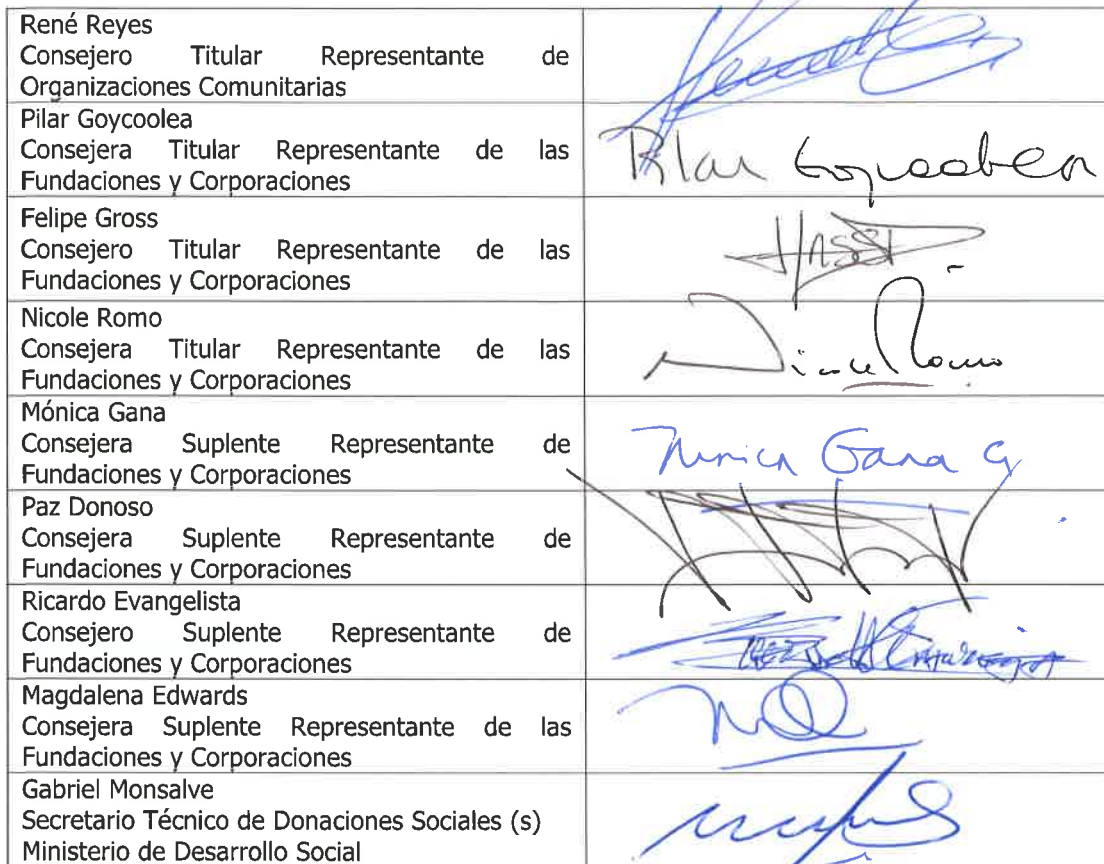 René Reyes
Consejero Titular Representante de
Organizaciones Comunitarias
Pilar Goycoolea
Consejera Titular Representante de las
Fundaciones y Corporaciones
Pilar Goycoolea
Felipe Gross
Consejero Titular Representante de las
Fundaciones y Corporaciones
Nicole Romo
Consejera Titular Representante de las
Fundaciones y Corporaciones
Nicole Romo
Mónica Gana
Consejera Suplente Representante de
Fundaciones y Corporaciones
Mónica Gana G
Paz Donoso
Consejera Suplente Representante de
Fundaciones y Corporaciones
Ricardo Evangelista
Consejero Suplente Representante de
Fundaciones y Corporaciones
Magdalena Edwards
Consejera Suplente Representante de las
Fundaciones y Corporaciones
Gabriel Monsalve
Secretario Técnico de Donaciones Sociales (s)
Ministerio de Desarrollo Social